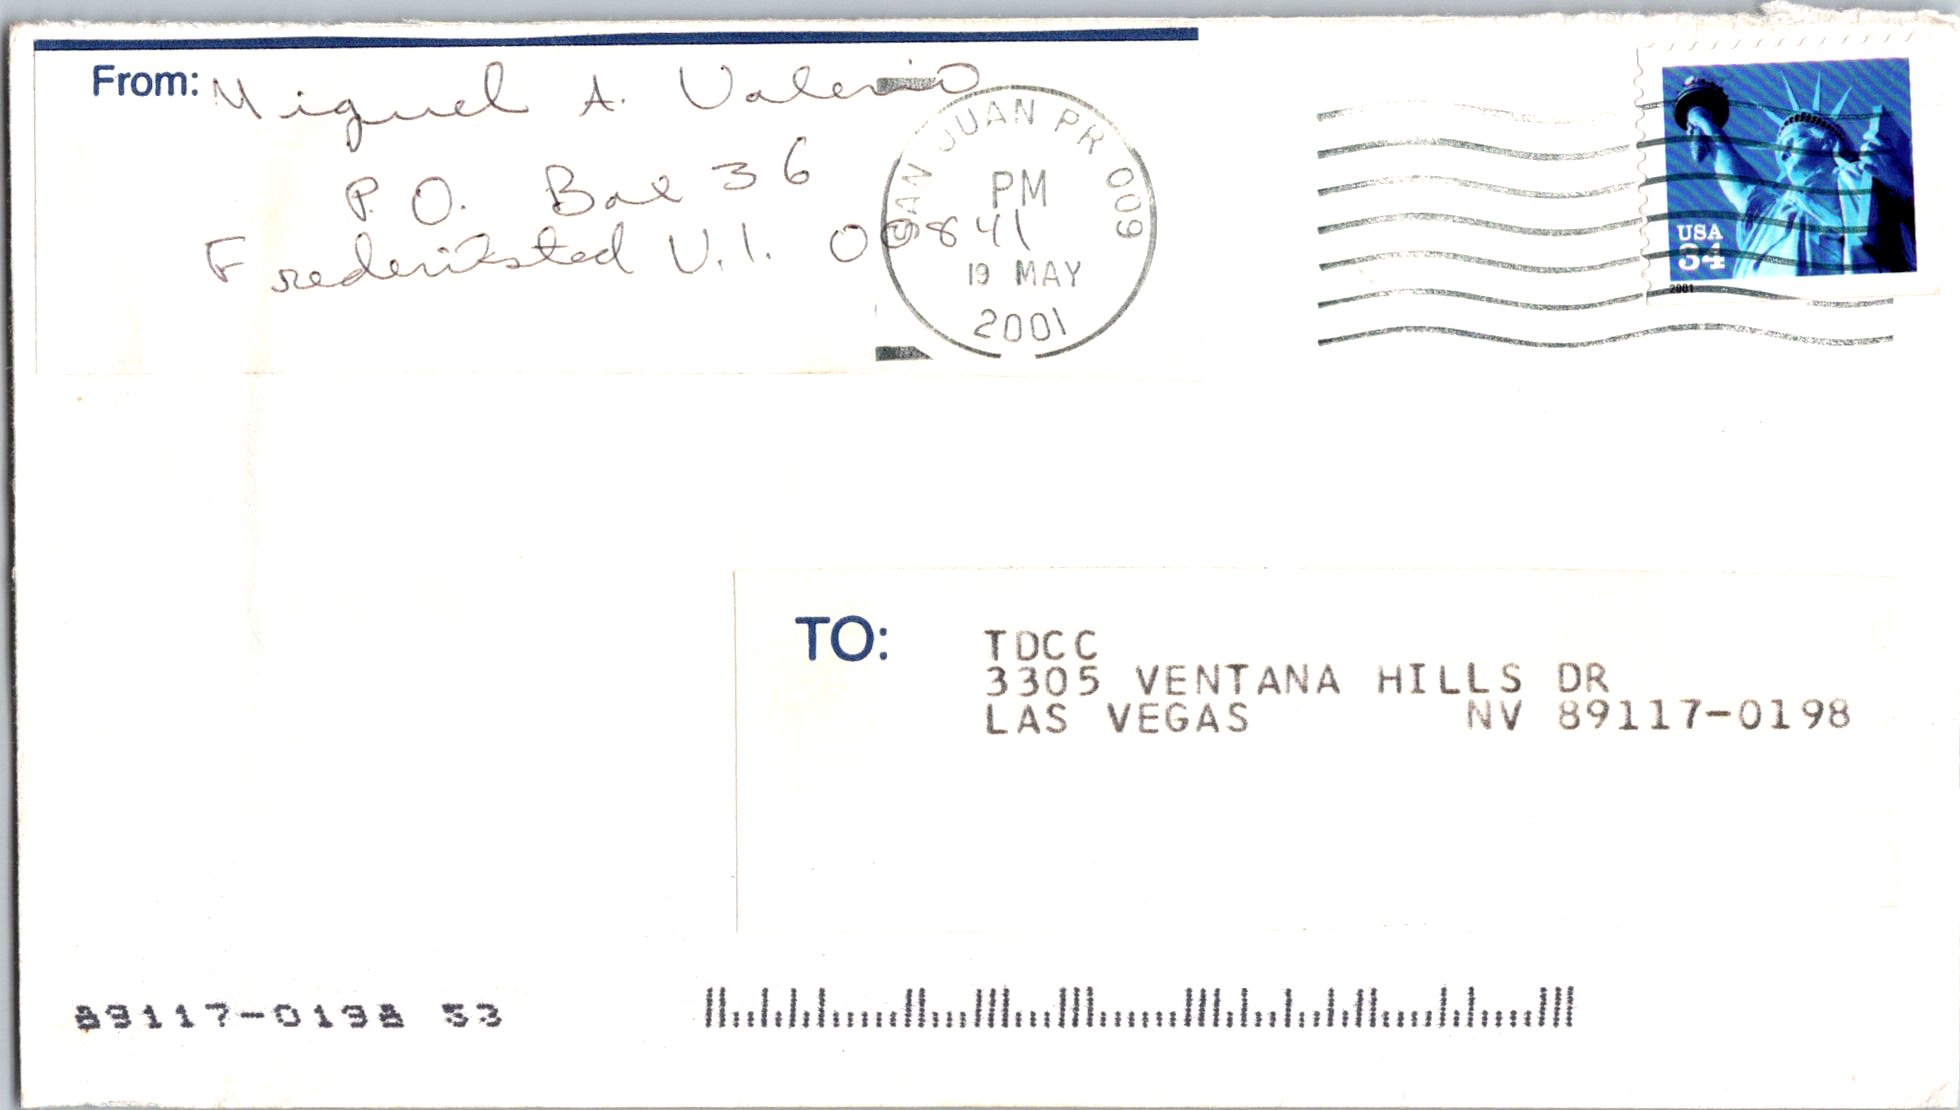 From: Miguel A. Valerio
P.O. Box 36
Frederiksted V.I. 00841
SAN JUAN PR 009
PM
19 MAY
2001
USA
34
2001
TO: TDCC
3305 VENTANA HILLS DR
LAS VEGAS NV 89117-0198
89117-0198 53